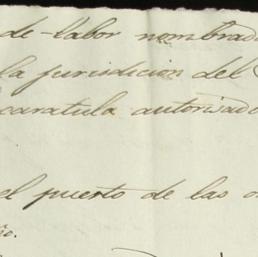 de labor nombrad
la jurisdicion del
caratula autorisad
el puerto de las